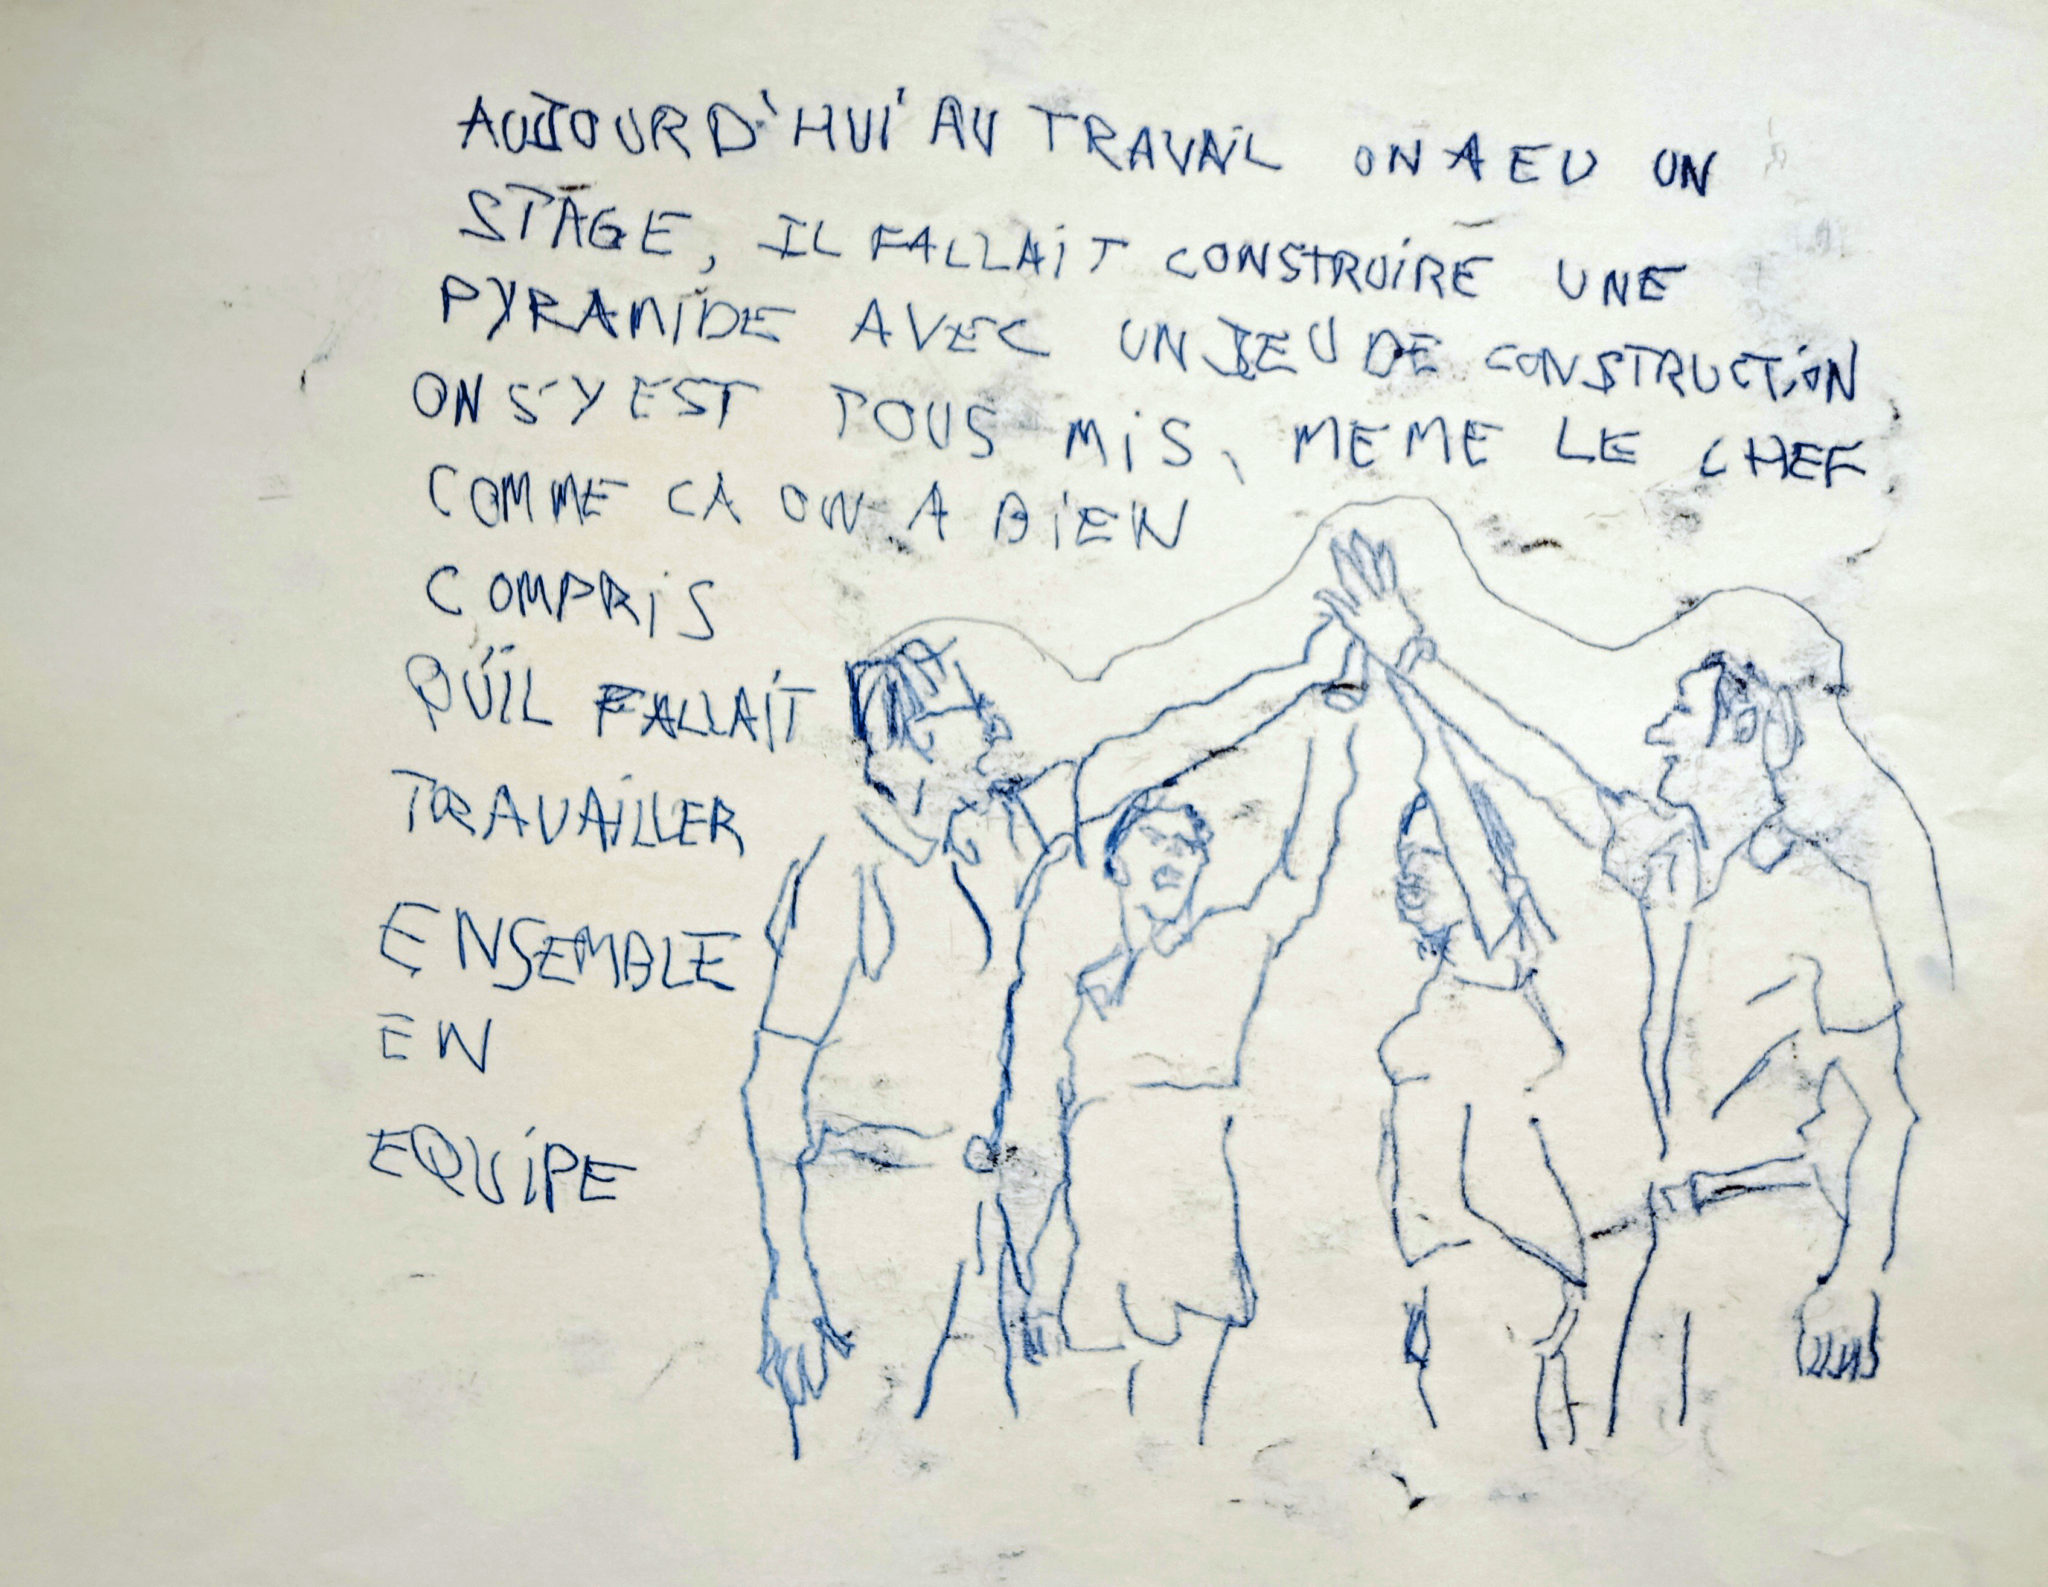 AUJOURD'HUI AU TRAVAIL ON A EU UN
STAGE, IL FALLAIT CONSTRUIRE UNE
PYRAMIDE AVEC UN JEU DE CONSTRUCTION
ON S'Y EST TOUS MIS, MEME LE CHEF
COMME CA ON A BIEN
COMPRIS
QU'IL FALLAIT
TRAVAILLER
ENSEMBLE
EN
EQUIPE